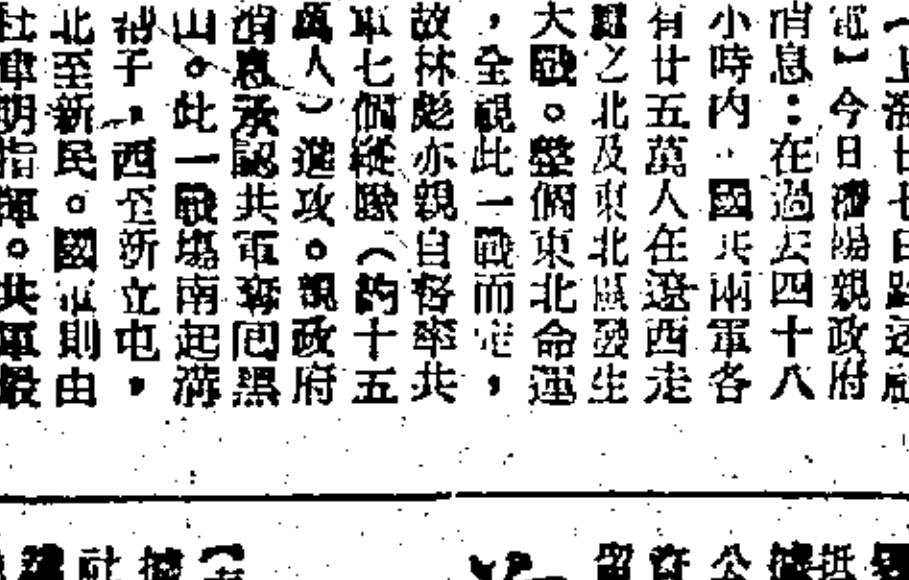 【上海廿七日路透社
電】今日瀋陽親政府
消息:在過去四十八
小時內,國共兩軍各
有廿五萬人在遼西走
廊之北及東北區發生
大戰。整個東北命運
,全視此一戰而定,
故林彪亦親自督率共
軍七個縱隊(約十五
萬人)進攻。親政府
消息承認共軍奪回黑
山。此一戰場南起溝
幫子,西至新立屯,
北至新民。國軍則由
杜聿明指揮。共軍最